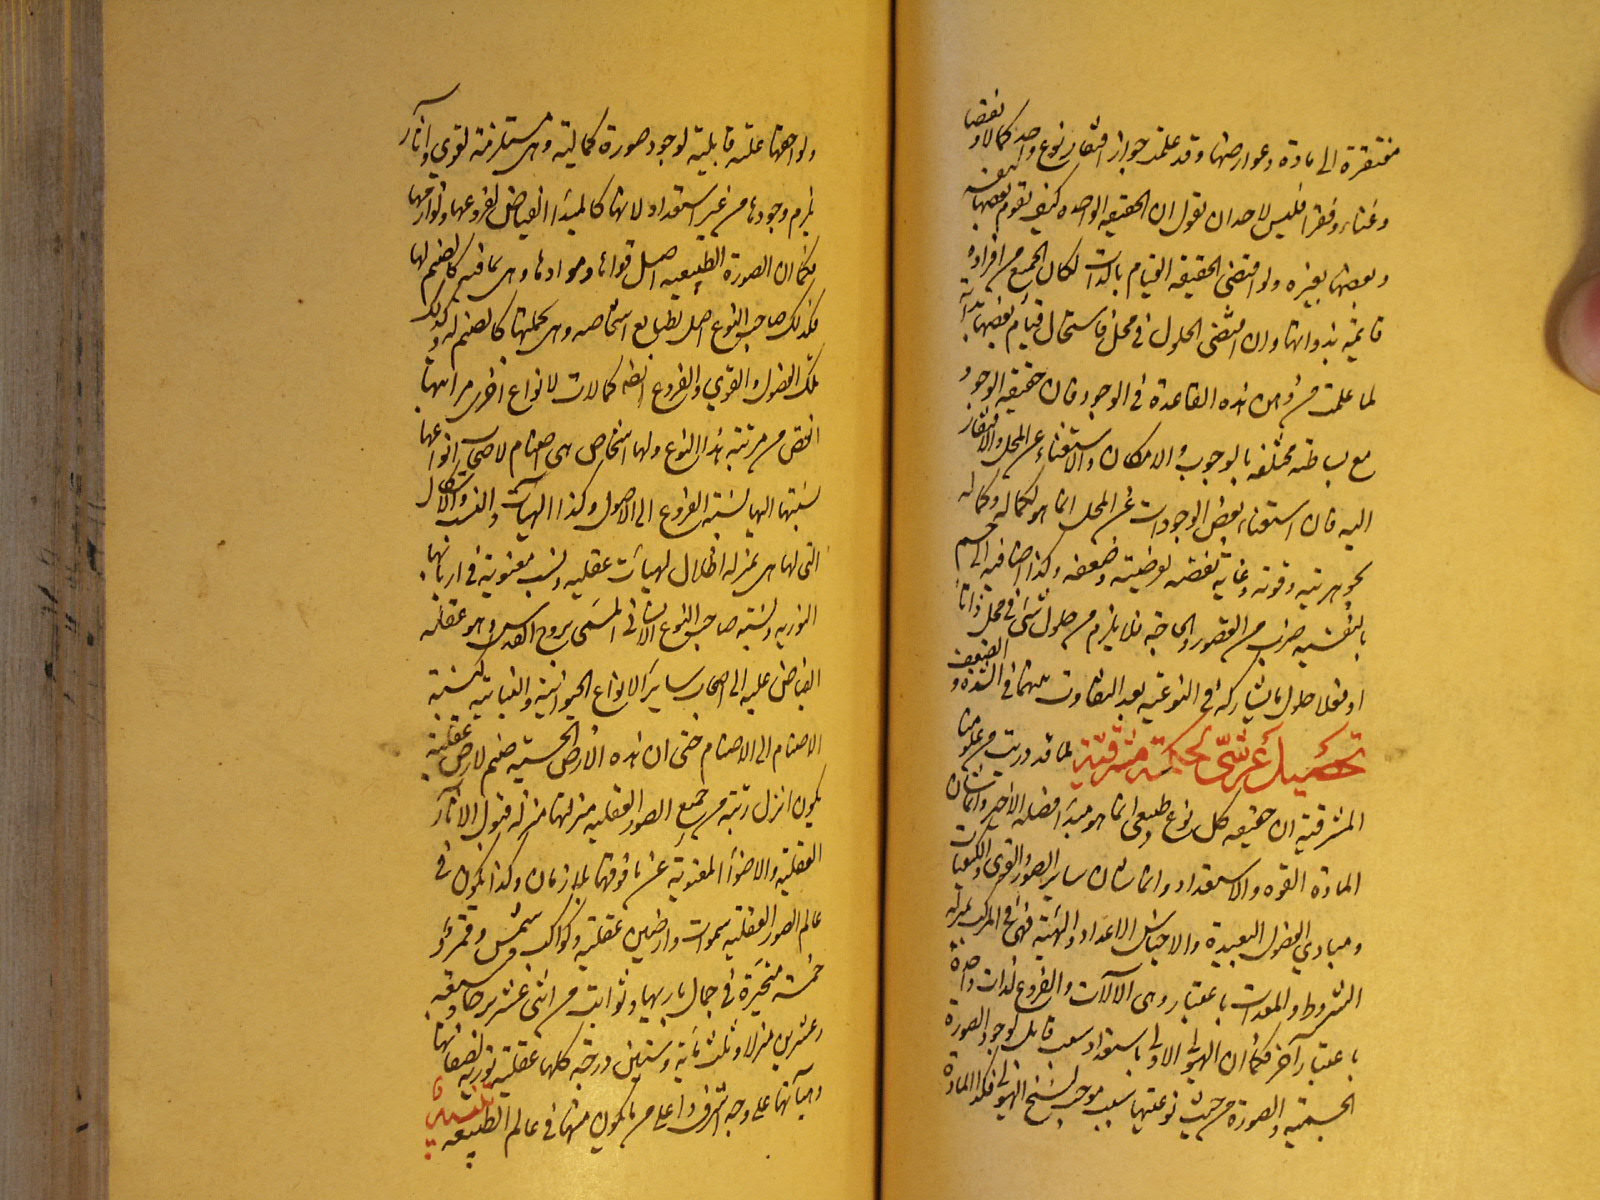 مفتقرة الى مادة وعوارضها وقد علمت جواز افتقار نوع واحد كمالا ونقصا
وغناء وفقرا فليس لاحد ان يقول ان الحقيقه الواحده كيف يقوم بعضها بنفسه
وبعضها بغيره ولو اقتضى الحقيقه القيام بالذات لكان الجميع من افراده
قايمة بذواتها وان اقتضى الحلول فى محل فاستحال قيام بعضها بذاته
لما علمت من وهن هذه القاعدة فى الوجود فان حقيقه الوجود
مع بساطته مختلفه بالوجوب والامكان والاستغناء عن المحل والافتقار
اليه فان استغناء بعض الوجودات عن المحل انما هو لكماله وكماله
بجوهريته وقوته وغاية نقصه لعرضيته وضعفه وكذا اضافته الى جسم
بالنفسيه ضرب من القصور والحاجة فلا يلزم من حلول شئ فى محل ذاتا
او فعلا حلول ما يشاركه فى النوعية بعد التفاوت بينهما فى الشدة والضعف
تحصيل عرشى لحكمة مشرقية لما قد دريت من علومنا
المشرقية ان حقيقه كل نوع طبيعى انما هو مبدا فصله الاخير وانما شان
المادة القوه والاستعداد وانما شان ساير الصور والقوى والكيفيات
ومبادي الفصول البعيدة والاجناس الاعداد والتهيئة فهى فى المركب بمنزلة
الشروط والمعدات باعتبار وهى الآلات والفروع لذات واحدة
باعتبار آخر فكما ان الهيولى الاولى باستعداد سبب قابل لوجود الصورة
الجسمية والصورة من حيث نوعيتها سبب موجب لسنخ الهيولى فكذا المادة
ولواحقها علة قابلية لوجود صورة كمالية وهى مستلزمة لقوى وآثار
يلزم وجودها من غير استعداد لانها كالمبدا الفياض لفروعها ولوازمها
فكما ان الصورة الطبيعيه اصل قواها وموادها وهى بما فيه كالصنم لها
فكذلك صاحب النوع اصل لطبايع اشخاصه وهى بجملتها كالصنم له وكذلك
تلك الفصول والقوى والفروع ايضا كمالات لانواع اخرى مراتبها
انقص من مرتبة هذا النوع ولها اشخاص هى اصنام لاصحاب انواعها
نسبتها اليها نسبة الفروع الى الاصول وكذا الهيآت والنسب والاشكال
التى لها هى بمنزلة اظلال لهيات عقليه ونسب معنوية فى اربابها
النوريه ونسبة صاحب النوع الانسانى المسمى بروح القدس وهو عقله
الفياض عليه الى اصحاب ساير الانواع الحيوانية والنباتية كنسبة
الاصنام الى الاصنام حتى ان هذه الارض الحسية صنم لارض عقلية
يكون انزل رتبة من جميع الصور العقليه منزلتها منزله قبول الآثار
العقلية والاضوأ المعنوية عن ما فوقها بلا زمان وكذا يكون فى
عالم الصور العقليه سموات وارضين عقليه وكواكب وشمس وقمر و
خمسة متحيرة فى جمال باريها وثوابت من اثنى عشر برجا وسبعة
وعشرين منزلا وثلثمائة وستين درجة كلها عقلية نورية لصفاتها
وهيآتها على وجه اشرف واعلى من ما يكون منها فى عالم الطبيعه